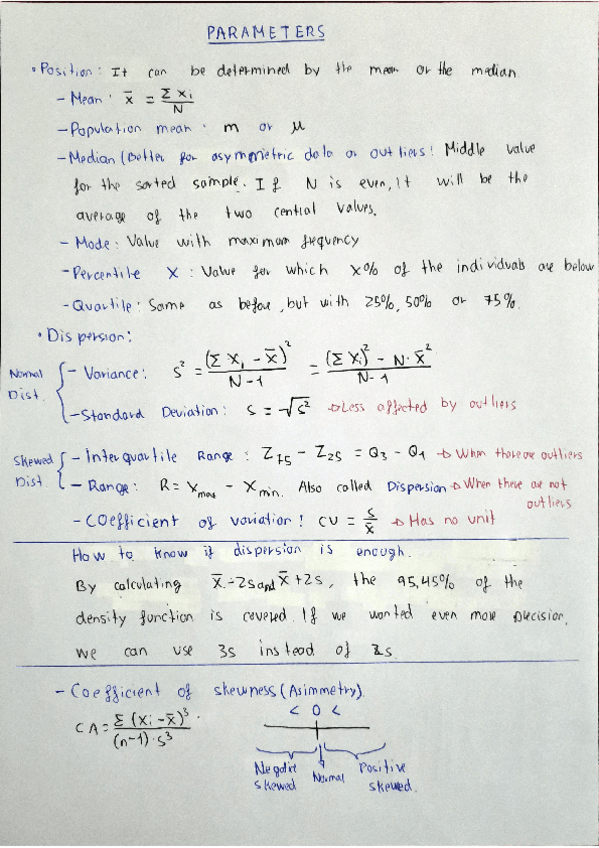 PARAMETERS
• Position: It can be determined by the mean or the median
- Mean: x̄ = Σxi / N
- Population mean: m or μ
- Median (Better for asymmetric data or outliers: Middle value
for the sorted sample. If N is even, it will be the
average of the two central values.
- Mode: Value with maximum frequency
- Percentile X: Value for which X% of the individuals are below
- Quartile: Same as before, but with 25%, 50% or 75%.
• Dispersion:
Normal Dist. { - Variance: s² = (Σxi - x̄)² / N-1 = (Σxi)² - N·x̄² / N-1
- Standard Deviation: s = √s² → Less affected by outliers
Skewed Dist { - Interquartile Range: Z75 - Z25 = Q3 - Q1 → When there are outliers
- Range: R = Xmax - Xmin. Also called Dispersion → When there are not outliers
- Coefficient of variation: CV = s / x̄ → Has no unit
How to know if dispersion is enough.
By calculating x̄-2s and x̄+2s, the 95,45% of the
density function is covered. If we wanted even more precision,
we can use 3s instead of 2s.
- Coefficient of skewness (Asimmetry).
CA = Σ(xi - x̄)³ / (n-1)·s³
< 0 <
Negative skewed Normal Positive skewed.